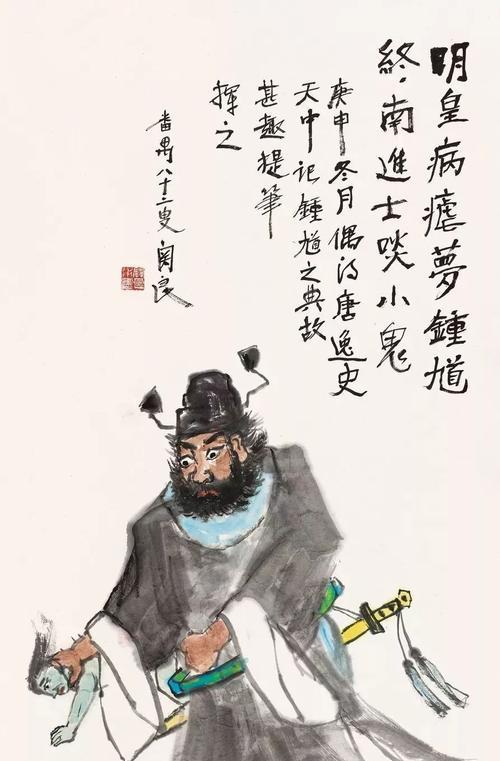 明皇病瘧夢鍾馗
終南進士啖小鬼
庚申冬月偶得唐逸史
天中记鍾馗之典故
甚趣提筆
揮之
番禺八十二叟関良